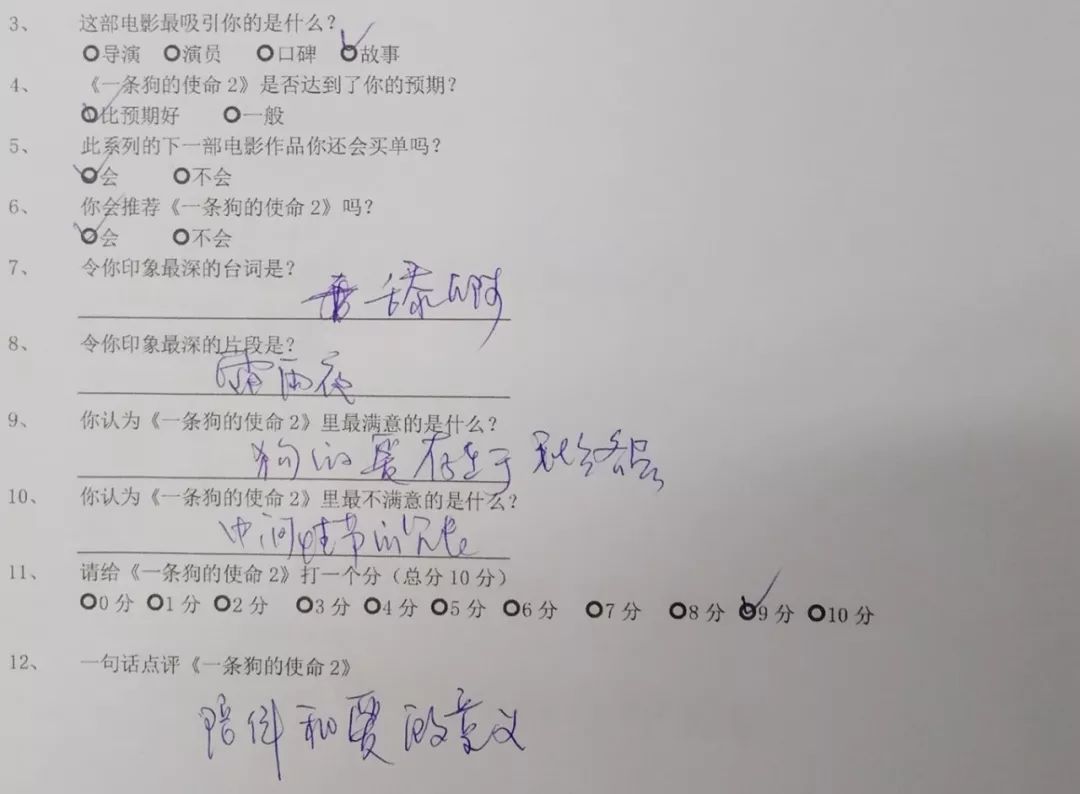 3、 这部电影最吸引你的是什么?
导演 演员 口碑 故事
4、 《一条狗的使命 2》是否达到了你的预期?
比预期好 一般
5、 此系列的下一部电影作品你还会买单吗?
会 不会
6、 你会推荐《一条狗的使命 2》吗?
会 不会
7、 令你印象最深的台词是?
舔
8、 令你印象最深的片段是?
雨夜
9、 你认为《一条狗的使命 2》里最满意的是什么?
狗的爱存在于
10、 你认为《一条狗的使命 2》里最不满意的是什么?
中间情节的冗长
11、 请给《一条狗的使命 2》打一个分（总分 10 分）
0 分 1 分 2 分 3 分 4 分 5 分 6 分 7 分 8 分 9 分 10 分
12、 一句话点评《一条狗的使命 2》
陪伴和爱的意义